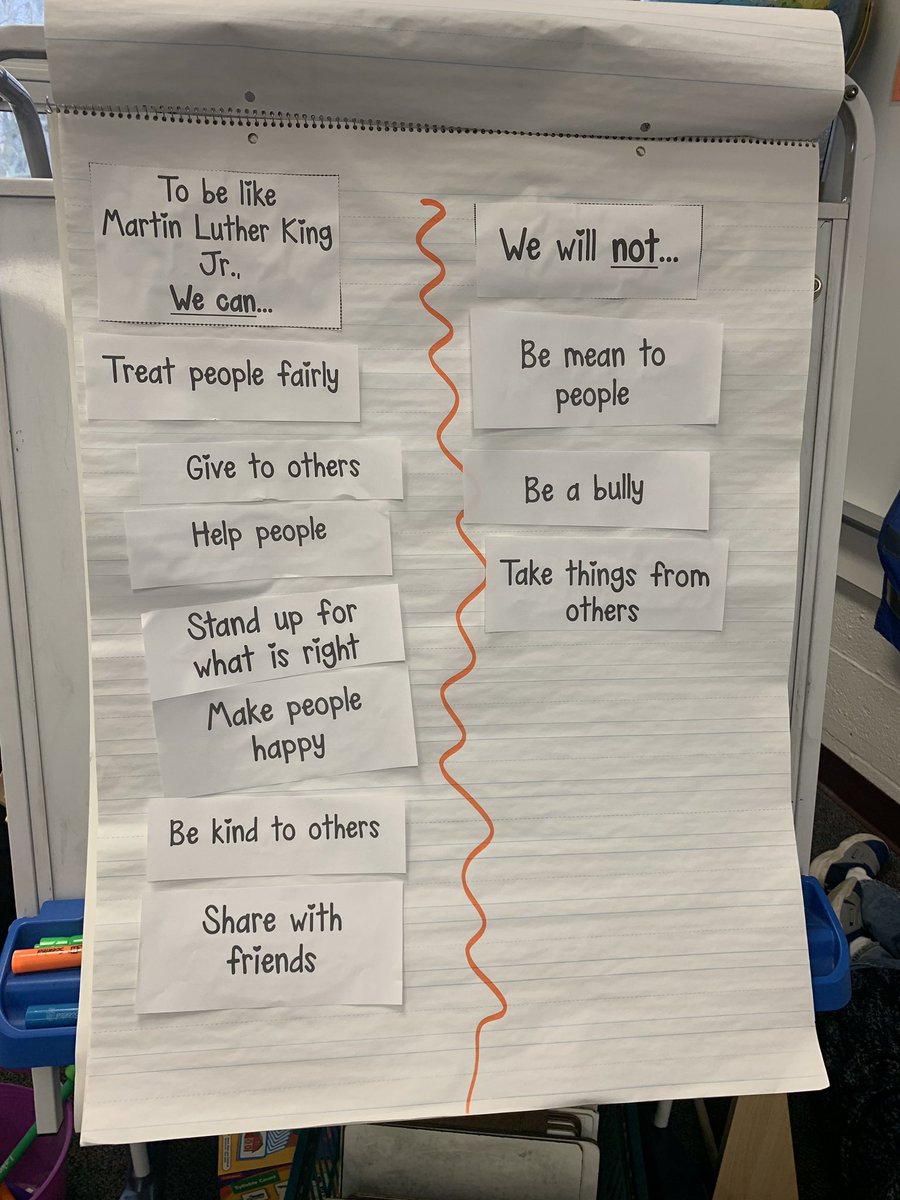 To be like
Martin Luther King
Jr.,
We can...
Treat people fairly
Give to others
Help people
Stand up for
what is right
Make people
happy
Be kind to others
Share with
friends
We will not...
Be mean to
people
Be a bully
Take things from
others
Syllable Count